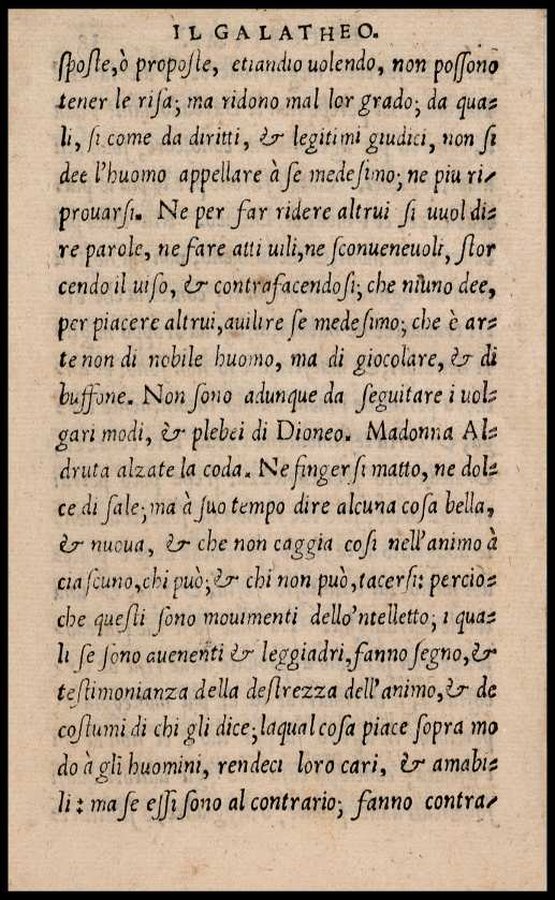 IL GALATHEO.
sposte, ò proposte, etiandio uolendo, non possono
tener le risa; ma ridono mal lor grado; da qua-
li, si come da diritti, & legitimi giudici, non si
dee l'huomo appellare à se medesimo; ne piu ri-
prouarsi. Ne per far ridere altrui si uuol di-
re parole, ne fare atti uili, ne sconueneuoli, stor
cendo il uiso, & contrafacendosi; che niuno dee,
per piacere altrui, auilire se medesimo; che è ar-
te non di nobile huomo, ma di giocolare, & di
buffone. Non sono adunque da seguitare i uol-
gari modi, & plebei di Dioneo. Madonna Al-
druta alzate la coda. Ne fingersi matto, ne dol-
ce di sale; ma à suo tempo dire alcuna cosa bella,
& nuoua, & che non caggia cosi nell'animo à
ciascuno, chi può; & chi non può, tacersi: percio-
che questi sono mouimenti dello'ntelletto; i qua-
li se sono auenenti & leggiadri, fanno segno, &
testimonianza della destrezza dell'animo, & de
costumi di chi gli dice; laqual cosa piace sopra mo
do à gli huomini, rendeci loro cari, & amabi-
li: ma se essi sono al contrario; fanno contra-